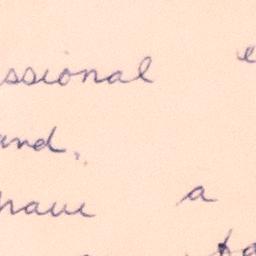 ssional e
and.
have a